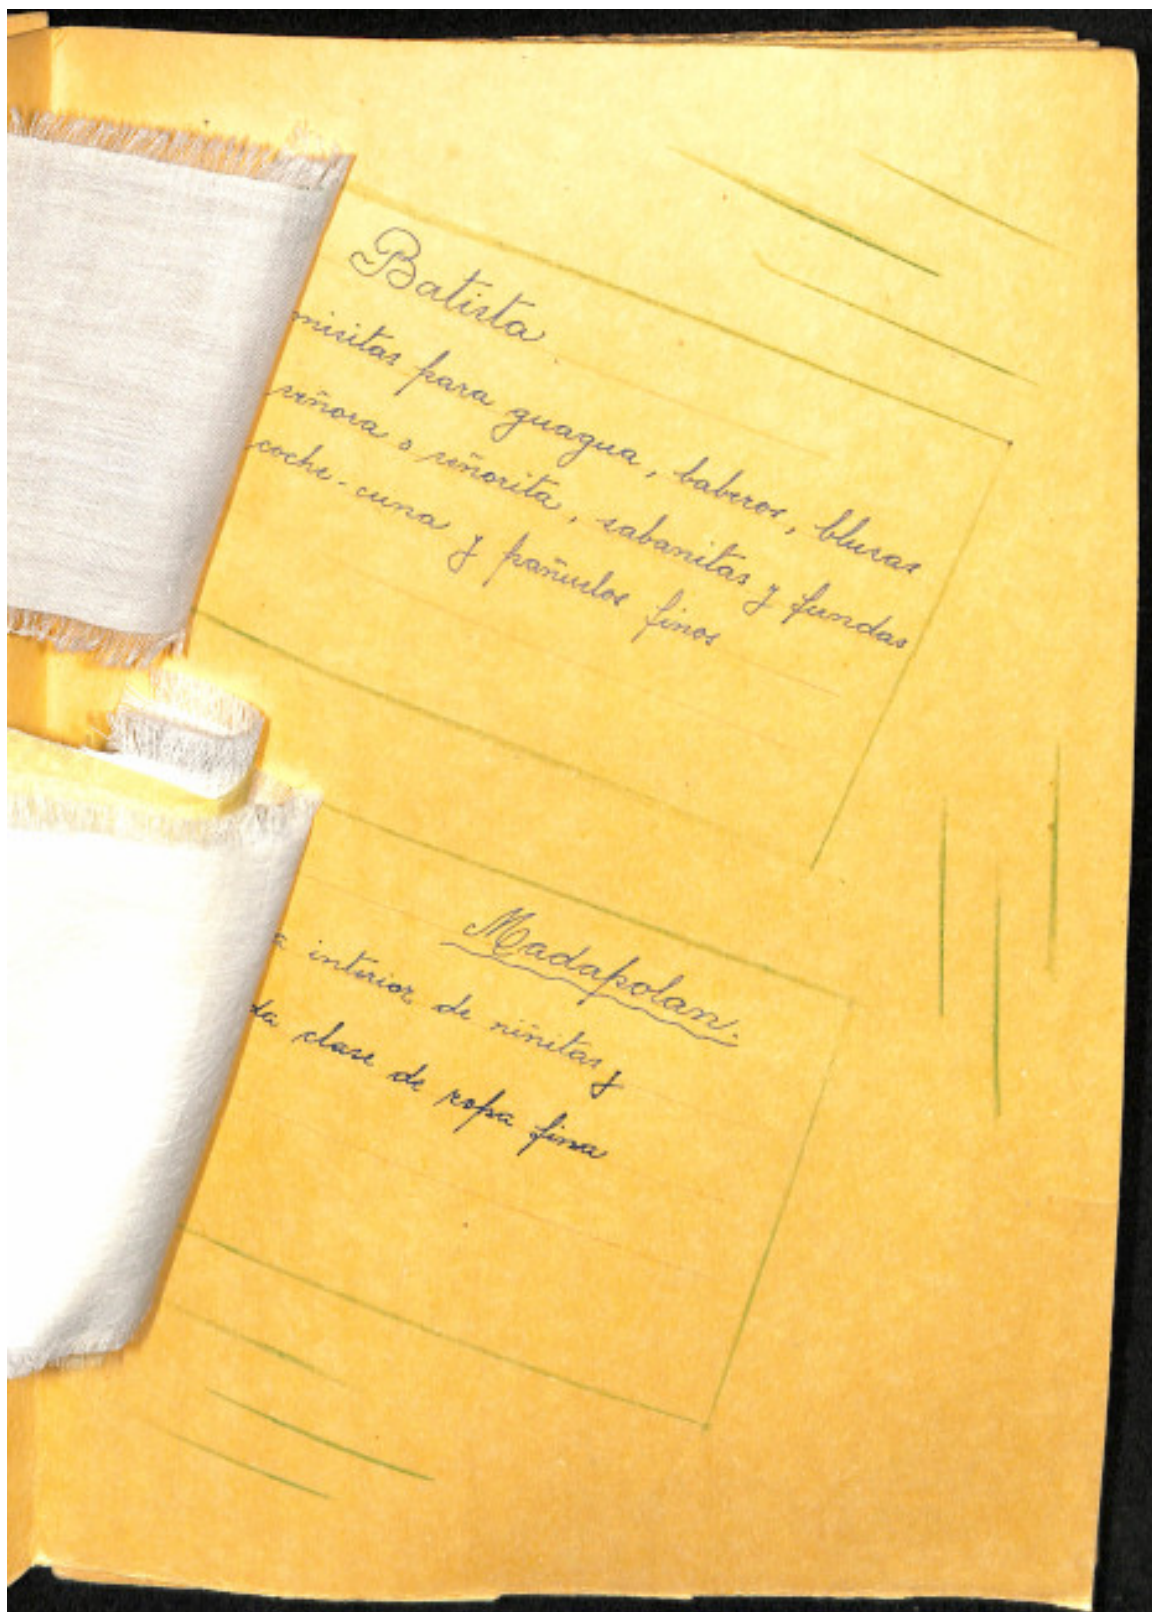 Batista
misitas para guagua, baberos, blusas
señora o señorita, sabanitas y fundas
coche-cuna y pañuelos finos
Madapolan.
a interior de niñitas y
da clase de ropa fina